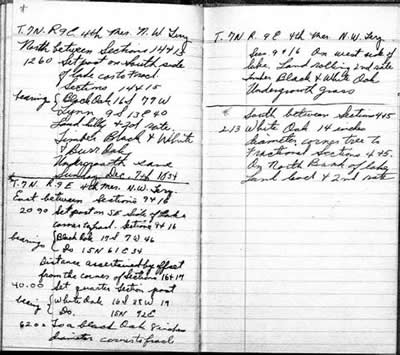 T. 7 N. R. 9 E 4th Mer. N. W. Tery.
North between Sections 14 & 15
12 60 Set post on South side
of lake cor to tract.
Sections 14 & 15
bearing { Black Oak 16 S 77 W
Lynn 9 S 13 E 40
Land hilly & 3rd rate
Timber Black & White
& Burr Oak
Undergrowth same
Sunday Dec. 7th 1834
T. 7 N. R. 9 E 4th Mer. N. W. Tery.
East between Sections 9 & 16
20 90 Set post on S E side of Lake &
corner to fracl. Sections 9 & 16
bearing { Black Oak 19 S 7 W 46
Do. 15 N 61 E 34
Distance ascertained by offset
from the corner of Sections 16 & 17
40.00 Set quarter Section post
bearing { White Oak 16 S 28 W 19
Do. 15 N 92 E
62 00 To a black Oak 8 inches
diameter corner to fracl
T. 7 N R. 9 E 4th Mer. N. W. Tery.
Sec. 9 & 16 On west side of
lake. Land rolling 2nd rate
timber Black & White Oak
Undergrowth grass
South between Sections 4 & 5
2.13 White Oak 14 inches
diameter, corner tree to
Fractional Sections 4 & 5.
On North Bank of lake
Land level & 2nd rate